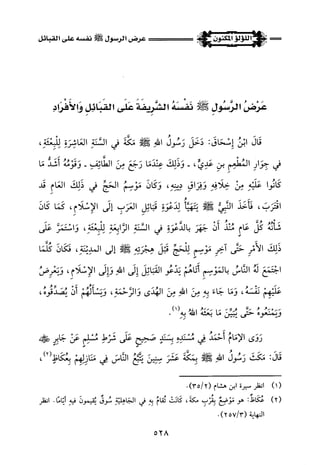 اللؤلؤ المكنون
عرض الرسول ﷺ نفسه على القبائل
عَرْضُ الرَّسُولِ ﷺ نَفْسَهُ الشَّرِيفَةَ عَلَى القَبَائِلِ وَالأَفْرَادِ
قَالَ ابْنُ إِسْحَاقَ: دَخَلَ رَسُولُ اللهِ ﷺ مَكَّةَ فِي السَّنَةِ العَاشِرَةِ لِلْبِعْثَةِ،
فِي جِوَارِ المُطْعِمِ بنِ عَدِيٍّ، ـ وَذَلِكَ عِنْدَمَا رَجَعَ مِنَ الطَّائِفِ ـ وَقَوْمُهُ أَشَدُّ مَا
كَانُوا عَلَيْهِ مِنْ خِلَافِهِ وَفِرَاقِ دِينِهِ، وَكَانَ مَوْسِمُ الحَجِّ فِي ذَلِكَ العَامِ قَد
اقْتَرَبَ، فَأَخَذَ النَّبِيُّ ﷺ يَتَهَيَّأُ لِدَعْوَةِ قَبَائِلِ العَرَبِ إِلَى الإِسْلَامِ، كَمَا كَانَ
شَأْنُهُ كُلَّ عَامٍ مُنْذُ أَنْ جَهَرَ بِالدَّعْوَةِ فِي السَّنَةِ الرَّابِعَةِ لِلْبِعْثَةِ، وَاسْتَمَرَّ عَلَى
ذَلِكَ الأَمْرِ حَتَّى آخِرِ مَوْسِمٍ لِلْحَجِّ قَبْلَ هِجْرَتِهِ ﷺ إلى المدِينَةِ، فَكَانَ كُلَّمَا
اجْتَمَعَ لَهُ النَّاسُ بالمَوْسِمِ أَتَاهُمْ يَدْعُو القَبَائِلَ إِلَى اللهِ وَإِلَى الإِسْلَامِ، وَيَعْرِضُ
عَلَيْهِمْ نَفْسَهُ، وَمَا جَاءَ بِهِ مِنَ اللهِ مِنَ الهُدَى وَالرَّحْمَةِ، وَيَسْأَلُهُمْ أَنْ يُصَدِّقُوهُ،
وَيَمْنَعُوهُ حَتَّى يُبَيِّنَ مَا بَعَثَهُ اللهُ بِهِ(١).
رَوَى الإِمَامُ أَحْمَدُ فِي مُسْنَدِهِ بِسَنَدٍ صَحِيحٍ عَلَى شَرْطِ مُسْلِمٍ عَنْ جَابِرٍ ﷺ
قَالَ: مَكَثَ رَسُولُ اللهِ ﷺ بِمَكَّةَ عَشْرَ سِنِينَ يَتَّبِعُ النَّاسَ فِي مَنَازِلِهِمْ بِعُكَاظٍ(٢)،
(١) انظر سيرة ابن هشام (٣٥/٢).
(٢) عُكَاظٌ: هو مَوْضِعٌ بِقُرْبِ مكة، كَانَتْ تُقَامُ به في الجَاهِلِيَّةِ سُوقٌ يُقِيمونَ فيهِ أَيَّامًا. انظر
النهاية (٢٥٧/٣).
٥٢٨